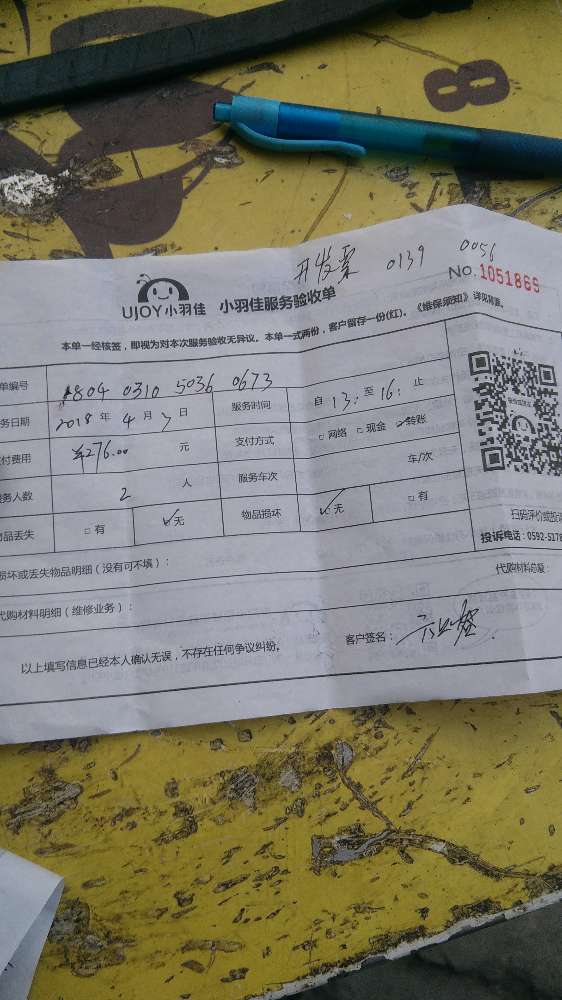 8
开发票 0139 0056
UJOY小羽佳 小羽佳服务验收单 NO.1051869
本单一经核签，即视为对本次服务验收无异议。本单一式两份，客户留存一份(红)。《维保须知》详见背面。
单编号 1804 0310 5036 0673
务日期 2018 年 4 月 3 日 服务时间 自 13: 至 16: 止
付费用 ¥276.00 元 支付方式 □网络 □现金 ☑转账
务人数 2 人 服务车次 车/次
物品丢失 □有 ☑无 物品损坏 ☑无 □有
扫码评价或投诉
投诉电话：0592-5178
损坏或丢失物品明细（没有可不填）：
代购材料总额：
代购材料明细（维修业务）：
以上填写信息已经本人确认无误，不存在任何争议纠纷。 客户签名：